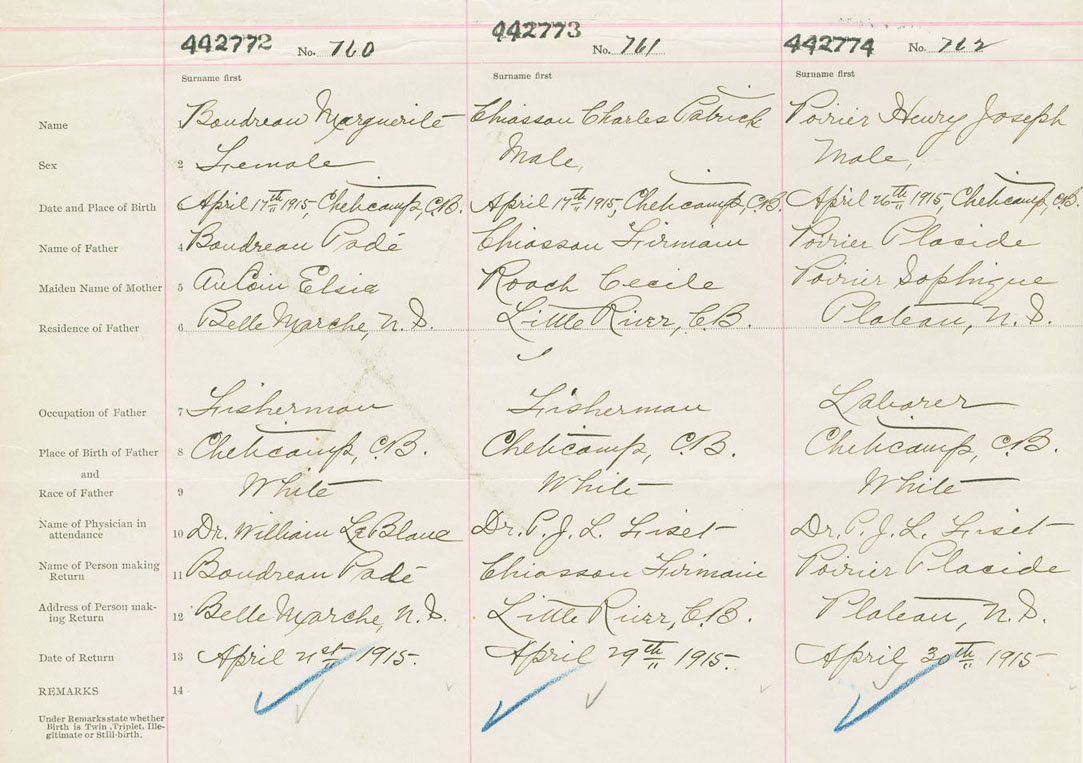 442772 No. 760 442773 No. 761 442774 No. 762
Surname first Surname first Surname first
Name 1 Boudreau Marguerite Chiasson Charles Patrick Poirier Henry Joseph
Sex 2 Female Male, Male,
Date and Place of Birth April 17th 1915, Cheticamp, C.B. April 17th 1915, Cheticamp, C.B. April 26th 1915, Cheticamp, C.B.
Name of Father 4 Boudreau Padé Chiasson Firmain Poirier Placide
Maiden Name of Mother 5 AuCoin Elsie Roach Cecile Poirier Sophique
Residence of Father 6 Belle Marche, N.S. Little River, C.B. Plateau, N.S.
Occupation of Father 7 Fisherman Fisherman Laborer
Place of Birth of Father 8 Cheticamp, C.B. Cheticamp, C.B. Cheticamp, C.B.
and
Race of Father 9 White White White
Name of Physician in
attendance 10 Dr. William LaBlanc Dr. P. J. L. Fiset Dr. P. J. L. Fiset
Name of Person making
Return 11 Boudreau Padé Chiasson Firmain Poirier Placide
Address of Person mak-
ing Return 12 Belle Marche, N.S. Little River, C.B. Plateau, N.S.
Date of Return 13 April 21st 1915. April 29th 1915. April 30th 1915
REMARKS 14
Under Remarks state whether
Birth is Twin, Triplet, Ille-
gitimate or Still-birth.